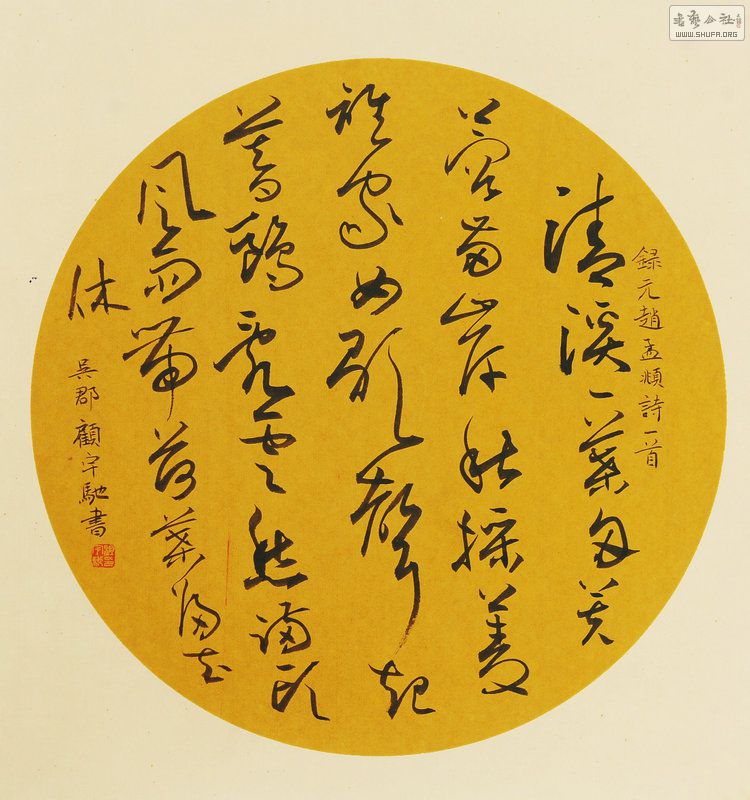 錄元趙孟頫詩一首
清溪一葉舟芙
蓉兩岸秋採菱
誰家女歌聲起
暮鷗亂雲愁滿頭
風雨帶荷葉歸去
休
吳郡顧宇馳書
書藝公社
WWW.SHUFA.ORG